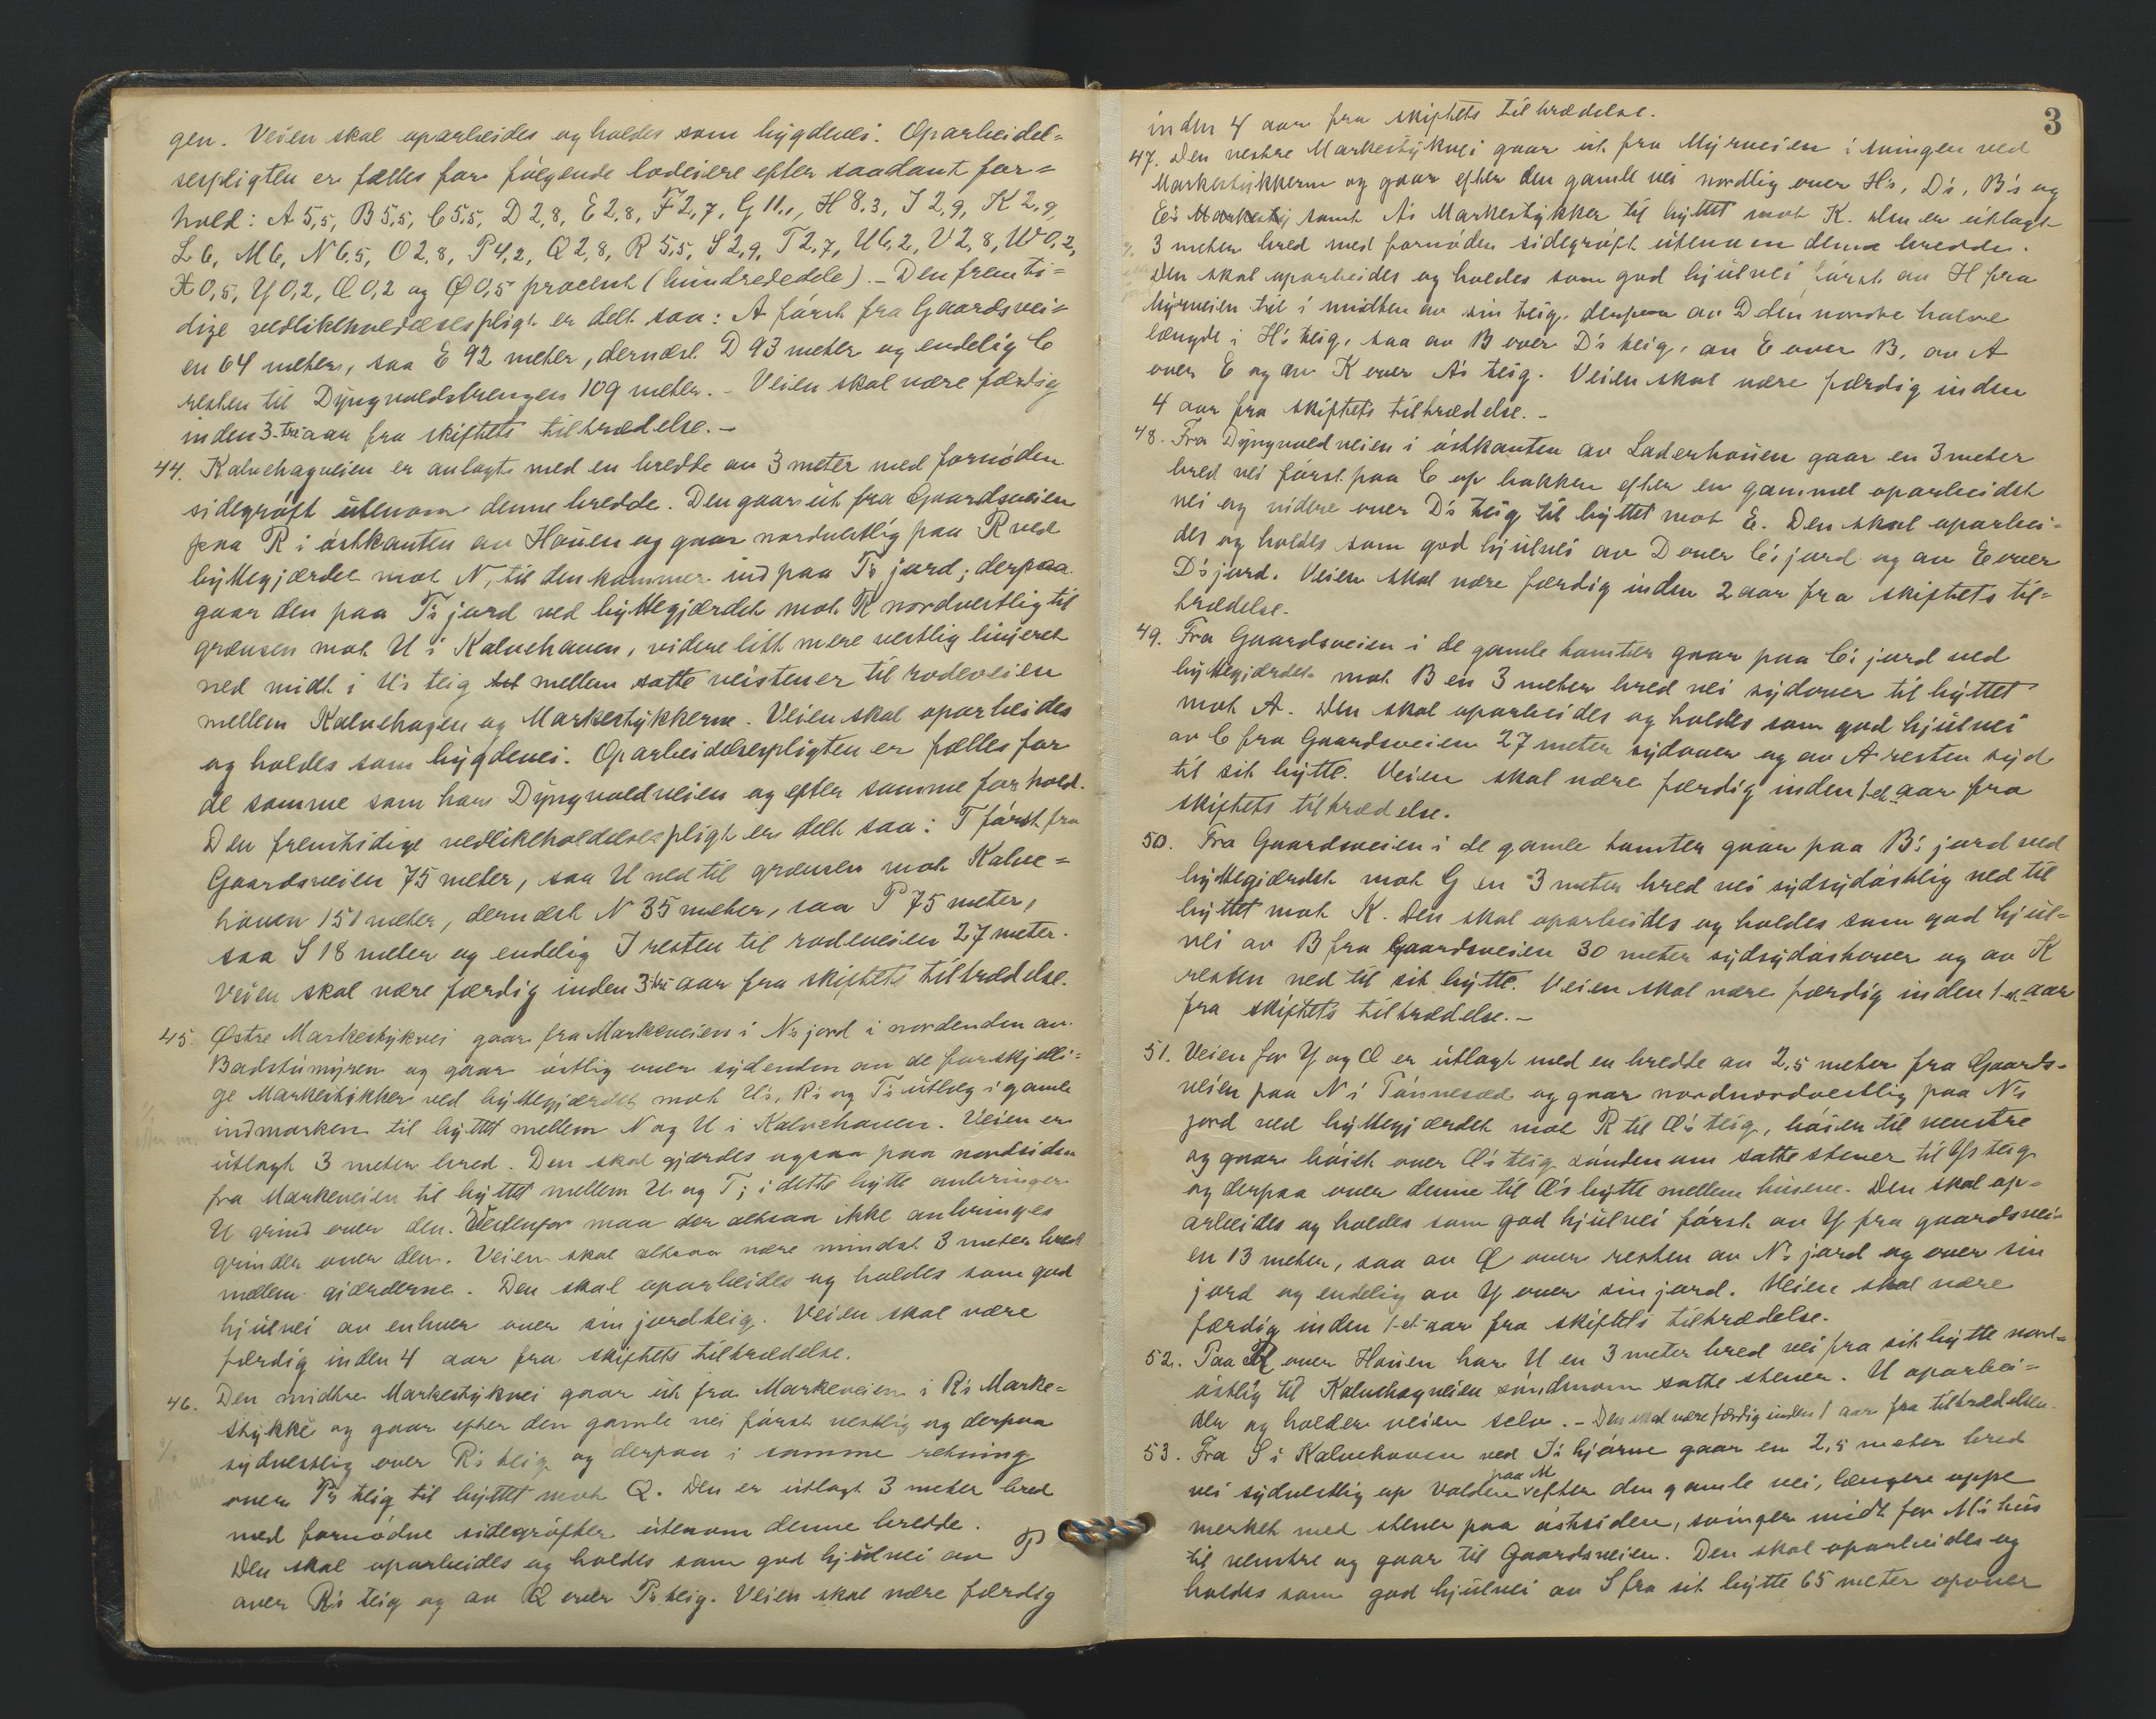 gen. Veien skal oparbeides og holdes som bygdevei. Oparbeidel=
sespligten er fælles for følgende lodeiere efter saadant for=
hold: A 5,5, B 5,5, C 5,5, D 2,8, E 2,8, F 2,7, G 11,1, H 8,3, I 2,9, K 2,9,
L 6, M 6, N 6,5, O 2,8, P 4,2, Q 2,8, R 5,5, S 2,9, T 2,7, U 6,2, V 2,8, W 0,2,
X 0,5, Y 0,2, Æ 0,2 og Ø 0,5 procent (hundrededele). - Den fremti=
dige vedlikeholdelsespligt er delt saa: A først fra Gaardsvei=
en 64 meter, saa E 92 meter, dernæst D 93 meter og endelig C
resten til Dyngvoldstrengen 109 meter. - Veien skal være færdig
inden 3-tre aar fra skiftets tiltrædelse. -
44. Kalvehagveien er anlagt med en bredde av 3 meter med fornøden
sidegrøft utenom denne bredde. Den gaar ut fra Gaardsveien
paa R i østkanten av Hauen og gaar nordvestlig paa R ved
byttegjærdet mot N, til den kommer ind paa T's jord; derpaa
gaar den paa T's jord ved byttegjærdet mot R nordvestlig til
grænsen mot U i Kalvehauen, videre litt mere vestlig linjeret
ned midt i U's teig mellem satte veistener til rodeveien
mellem Kalvehagen og Markestykkerne. Veien skal oparbeides
og holdes som bygdevei. Oparbeidelsespligten er fælles for
de samme som har Dyngvoldveien og efter samme forhold.
Den fremtidige vedlikeholdelsespligt er delt saa: T først fra
Gaardsveien 75 meter, saa U ned til grænsen mot Kalve=
hauen 151 meter, dernæst N 35 meter, saa P 75 meter,
saa S 18 meter og endelig I resten til rodeveien 27 meter.
Veien skal være færdig inden 3 tre aar fra skiftets tiltrædelse.
45. Østre Markestykvei gaar fra Markeveien i N's jord i nordenden av
Badstumyren og gaar østlig over sydenden av de forskjelli=
ge Markestykker ved byttegjærdet mot U's, R's og T's utlæg i gamle
indmarken til byttet mellem N og U i Kalvehauen. Veien er
utlagt 3 meter bred. Den skal gjærdes ogsaa paa nordsiden
fra Markeveien til byttet mellem U og T; i dette bytte anbringer
U grind over den. Vestenfor maa der altsaa ikke anbringes
grinder over den. Veien skal altsaa være mindst 3 meter bred
mellem gjærderne. Den skal oparbeides og holdes som god
hjulvei av enhver over sin jordteig. Veien skal være
færdig inden 4 aar fra skiftets tiltrædelse.
46. Den midtre Markestykvei gaar ut fra Markeveien i R's Marke=
stykke og gaar efter den gamle vei først vestlig og derpaa
sydvestlig over R's teig og derpaa i samme retning
over P's teig til byttet mot Q. Den er utlagt 3 meter bred
med fornødne sidegrøfter utenom denne bredde.
Den skal oparbeides og holdes som god hjulvei av P
over R's teig og av Q over P's teig. Veien skal være færdig
3
inden 4 aar fra skiftets tiltrædelse.
47. Den vestre Markestykvei gaar ut fra Myrveien i svingen ved
Markestykkerne og gaar efter den gamle vei nordlig over H's, D's, B's og
E's Markestyk samt A's Markestykker til byttet mot K. Den er utlagt
3 meter bred med fornøden sidegrøft utenom denne bredde.
Den skal oparbeides og holdes som god hjulvei først av H fra
Myrveien til i midten av sin teig, derpaa av D den nordre halve
længde i H's teig, saa av B over D's teig, av E over B, av A
over E og av K over A's teig. Veien skal være færdig inden
4 aar fra skiftets tiltrædelse. -
48. Fra Dyngvoldveien i østkanten av Laderhauen gaar en 3 meter
bred vei først paa C op bakken efter en gammel oparbeidet
vei og videre over D's teig til byttet mot E. Den skal oparbei=
des og holdes som god hjulvei av D over C's jord og av E over
D's jord. Veien skal være færdig inden 2 aar fra skiftets til=
trædelse.
49. Fra Gaardsveien i de gamle tomter gaar paa C's jord ved
byttegjærdet mot B en 3 meter bred vei sydover til byttet
mot A. Den skal oparbeides og holdes som god hjulvei
av C fra Gaardsveien 27 meter sydover og av A resten syd
til sit bytte. Veien skal være færdig inden 1-et aar fra
skiftets tiltrædelse.
50. Fra Gaardsveien i de gamle tomter gaar paa B's jord ved
byttegjærdet mot G en 3 meter bred vei sydsydøstlig ned til
byttet mot K. Den skal oparbeides og holdes som god hjul=
vei av B fra Gaardsveien 30 meter sydsydøstover og av K
resten ned til sit bytte. Veien skal være færdig inden 1-et aar
fra skiftets tiltrædelse. -
51. Veien for Y og Æ er utlagt med en bredde av 2,5 meter fra Gaards-
veien paa N i Tønnesæd og gaar nordnordvestlig paa N's
jord ved byttegjærdet mot R til Æ's teig, bøier til venstre
og gaar bøiet over Æ's teig søndenom satte stener til Y's teig
og derpaa over denne til Æ's bytte mellem husene. Den skal op=
arbeides og holdes som god hjulvei først av Y fra gaardsvei-
en 13 meter, saa av Æ over resten av N's jord og over sin
jord og endelig av Y over sin jord. Veien skal være
færdig inden 1-et-aar fra skiftets tiltrædelse.
52. Paa R over Hauen har U en 3 meter bred vei fra sit bytte nord-
østlig til Kalvehagveien søndenom satte stener. U oparbei=
der og holder veien selv. - Den skal være færdig inden 1 aar fra tiltrædelsen.
53. Fra S i Kalvehauen ved I's hjørne gaar en 2,5 meter bred
vei sydvestlig op volden paa M efter den gamle vei, længere oppe
merket med stener paa østsiden, svinger midt for M's hus
til venstre og gaar til Gaardsveien. Den skal oparbeides og
holdes som god hjulvei av S fra sit bytte 65 meter opover